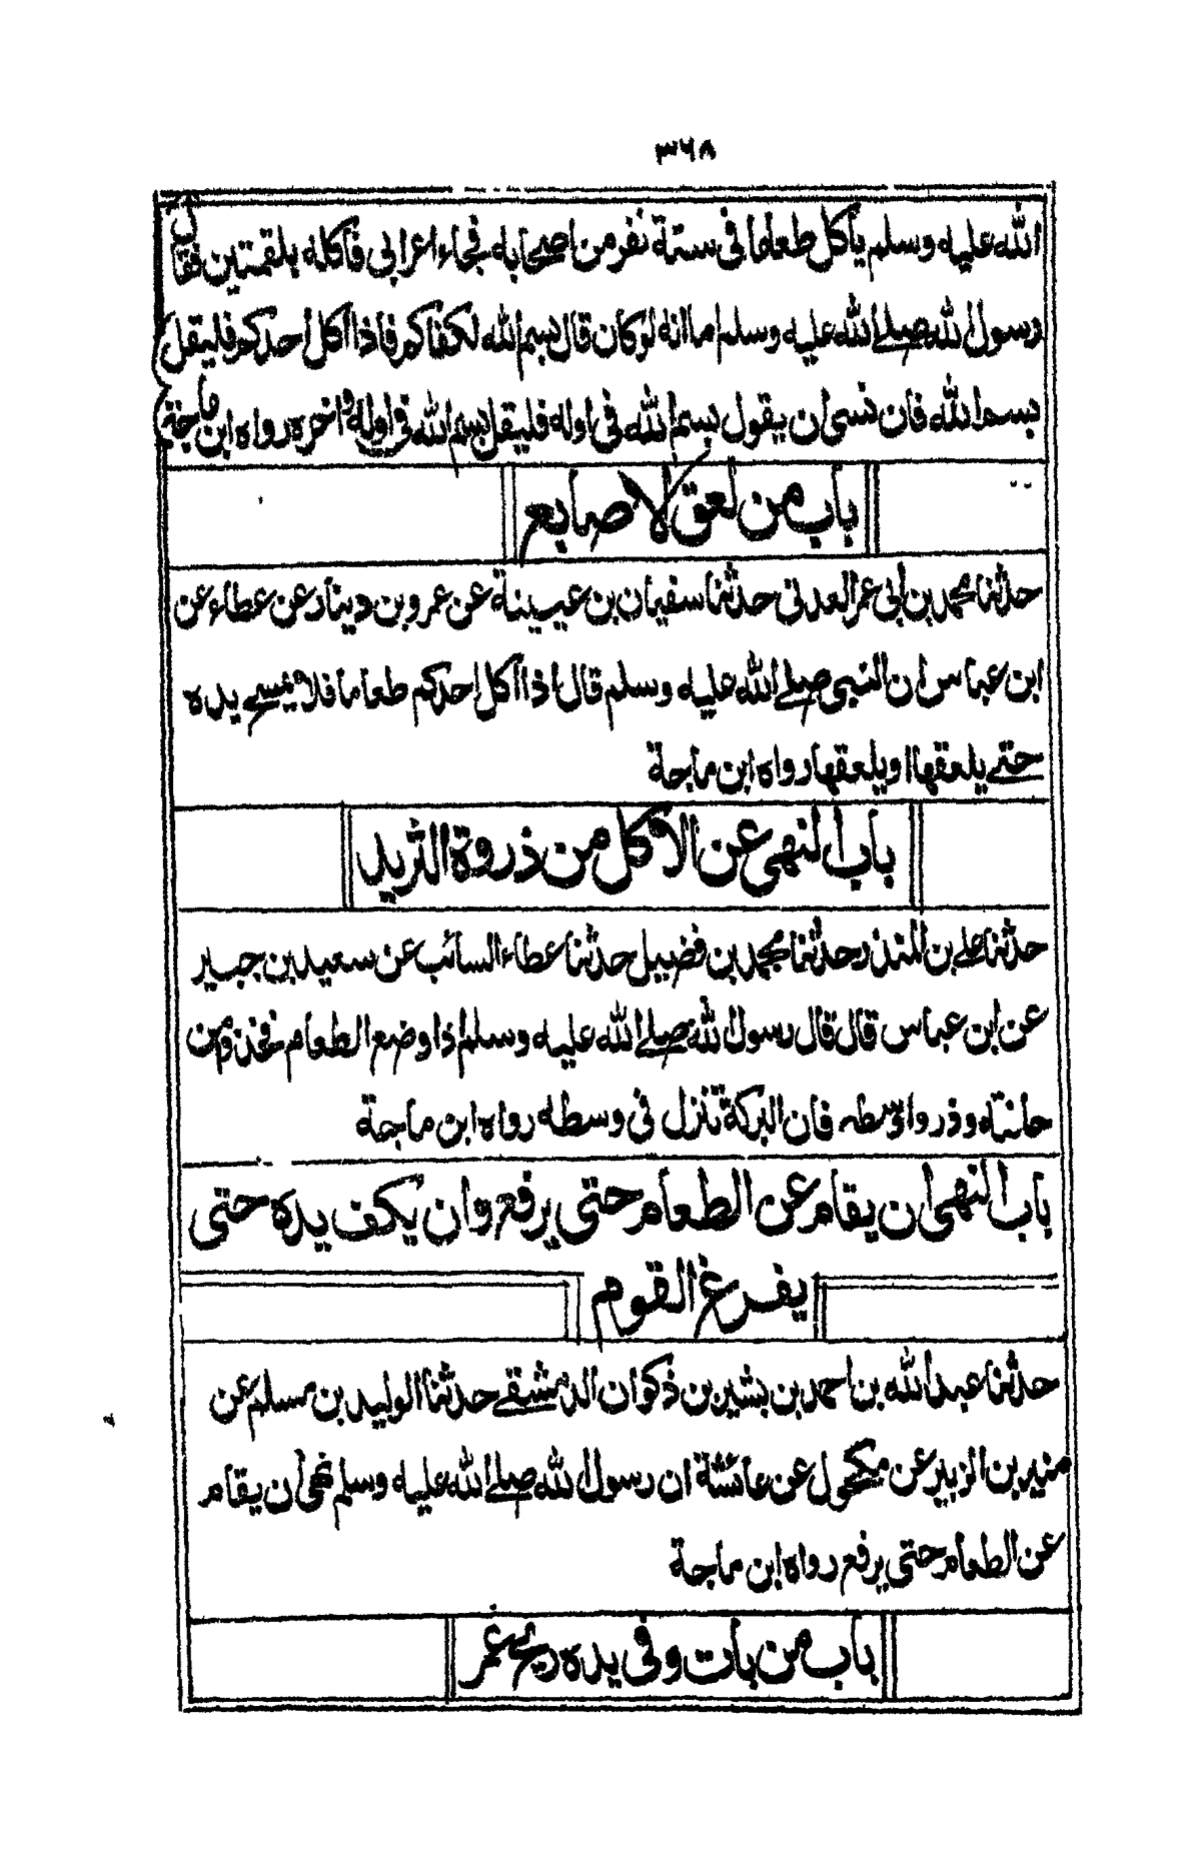 ٣٦٨
الله عليه وسلم يأكل طعاما فى ستة نفر من اصحابه فجاء اعرابى فاكله بلقمتين فقال
رسول الله صلى الله عليه وسلم اما انه لو كان قال بسم الله لكفاكم فاذا اكل احدكم فليقل
بسم الله فان نسى ان يقول بسم الله فى اوله فليقل بسم الله فى اوله واخره رواه ابن ماجة
باب من لعق الاصابع
حدثنا محمد بن ابى عمر العدنى حدثنا سفيان بن عيينة عن عمرو بن دينار عن عطاء عن
ابن عباس ان النبى صلى الله عليه وسلم قال اذا اكل احدكم طعاما فلا يمسح يده
حتى يلعقها او يلعقها رواه ابن ماجة
باب النهى عن الاكل من ذروة الثريد
حدثنا على بن المنذر حدثنا محمد بن فضيل حدثنا عطاء السائب عن سعيد بن جبير
عن ابن عباس قال قال رسول الله صلى الله عليه وسلم اذا وضع الطعام فخذوه من
حافته وذروا وسطه فان البركة تنزل فى وسطه رواه ابن ماجة
باب النهى ان يقام عن الطعام حتى يرفع وان يكف يده حتى
يفرغ القوم
حدثنا عبد الله بن احمد بن بشير بن ذكوان الدمشقى حدثنا الوليد بن مسلم عن
منير بن الزبير عن مكحول عن عائشة ان رسول الله صلى الله عليه وسلم نهى ان يقام
عن الطعام حتى يرفع رواه ابن ماجة
باب من بات وفى يده ريح غمر